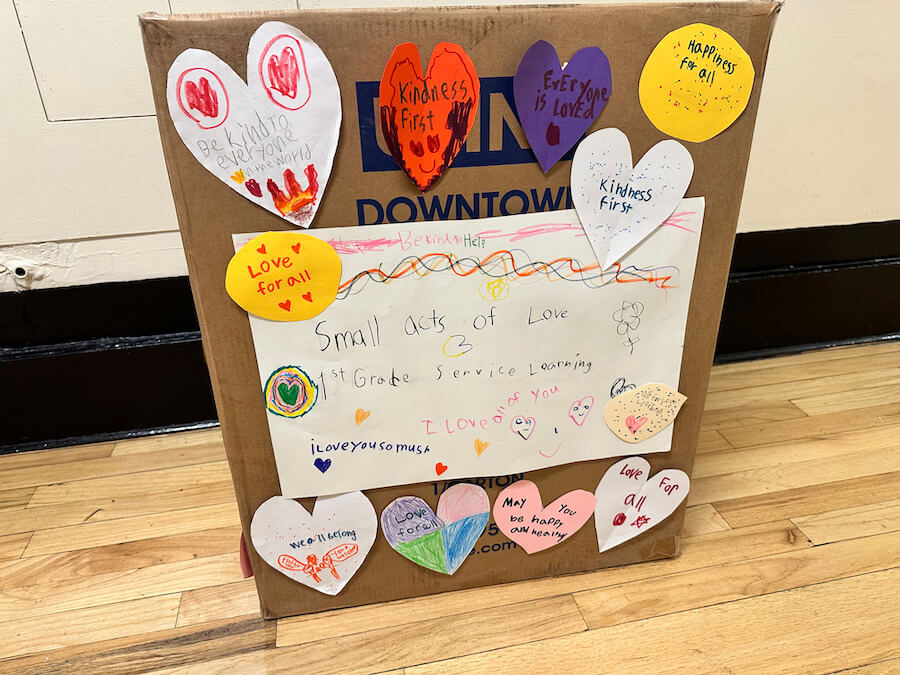 Be kind to
everyone
in the world
Kindness
First
EvEryone
is LOVEd
Happiness
for all
DOWNTOWN
Kindness
first
Be kind to Help
Love
for all
Small acts of Love
1st Grade Service Learning
I Love all of you
iLoveyousomush
we all belong
Love
for all
May You
be happy
and healthy
Love For
all
.com